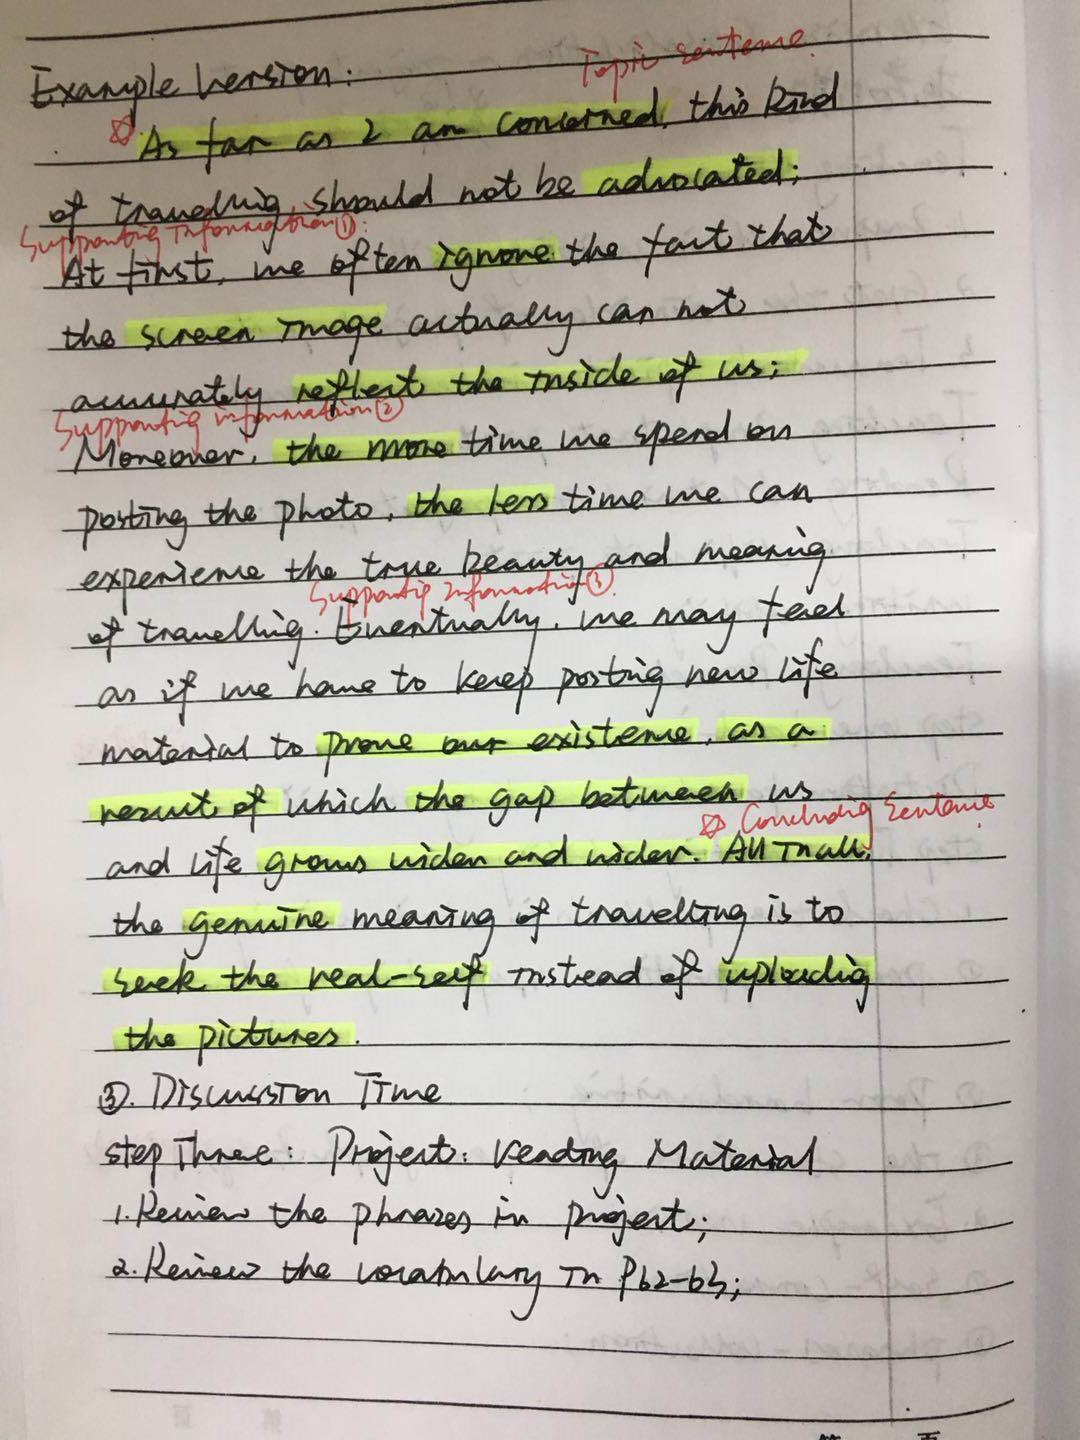 Example Version:
Topic sentence
☆ As far as I am concerned, this kind
of travelling should not be advocated;
Supporting Information①:
At first, we often ignore the fact that
the screen image actually can not
accurately reflect the inside of us;
Supporting information②
Moreover, the more time we spend on
posting the photo, the less time we can
experience the true beauty and meaning
Supporting Information③
of travelling. Eventually, we may feel
as if we have to keep posting new life
material to prove our existence, as a
result of which the gap between us
☆ Concluding Sentence
and life grows wider and wider. All in all,
the genuine meaning of travelling is to
seek the real-self instead of uploading
the pictures.
③. Discussion Time
Step Three: Project: Reading Material
1. Review the phrases in project;
2. Review the vocabulary in P62-63;
第 页